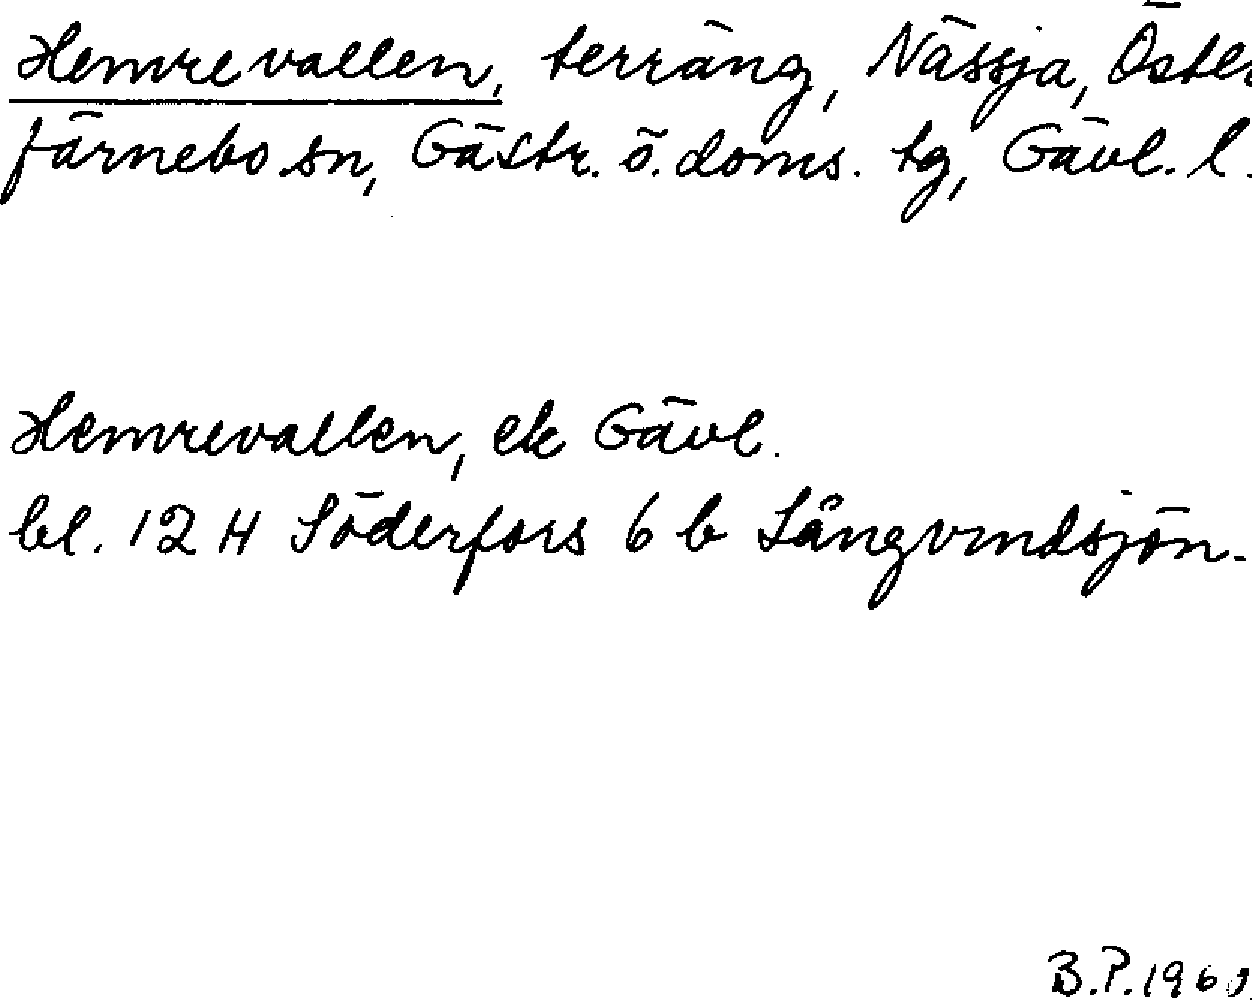 Hemrevallen, terräng, Nässja, Öster
färnebo sn, Gästr. ö. doms. tg, Gävl. l.
Hemrevallen, ek Gävl.
bl. 12 H Söderfors 6 b Långvindsjön.
B.P. 1960